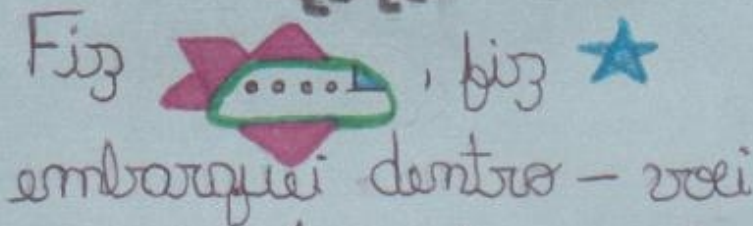 Fiz , fiz
embarquei dentro - voei